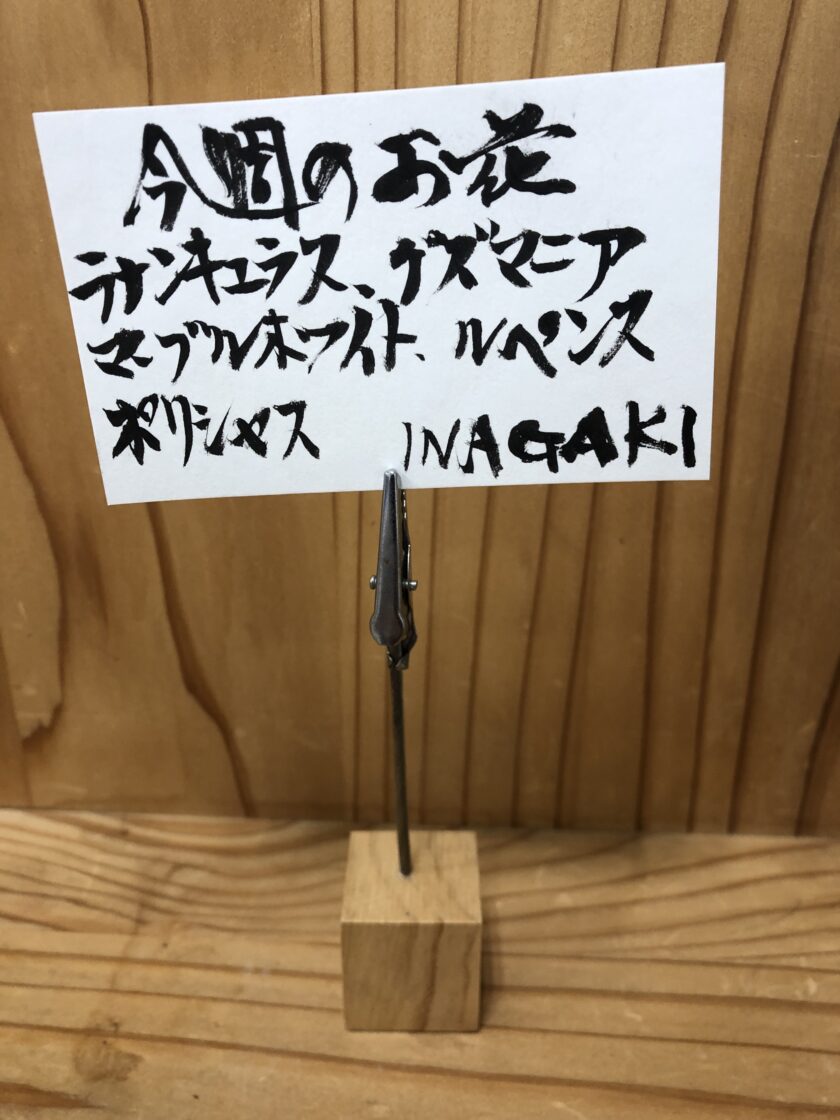 今週のお花
ラナンキュラス、グズマニア
マーブルホワイト、ルペンス
ポリシャス INAGAKI